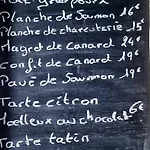 Planche de Saumon 16€
Planche de charcuterie 15€
Magret de Canard 24€
Confit de Canard 19€
Pavé de Saumon 19€
Tarte citron
Moelleux au chocolat 6€
Tarte tatin